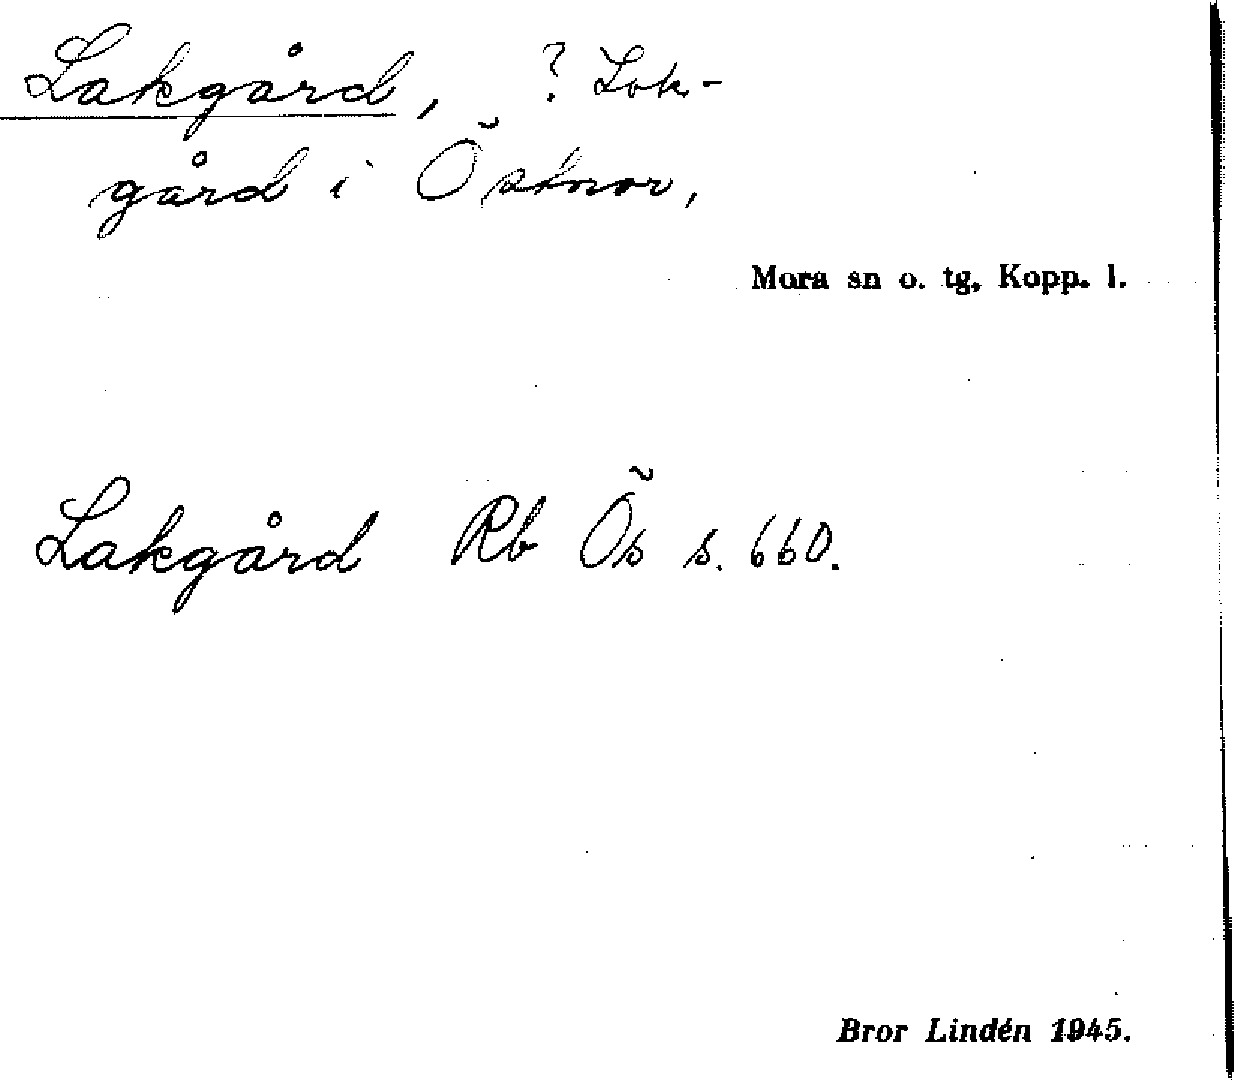 Lakgård, ? Lok-
gård i Östnor,
Mora sn o. tg, Kopp. l.
Lakgård Rb Ös s. 660.
Bror Lindén 1945.